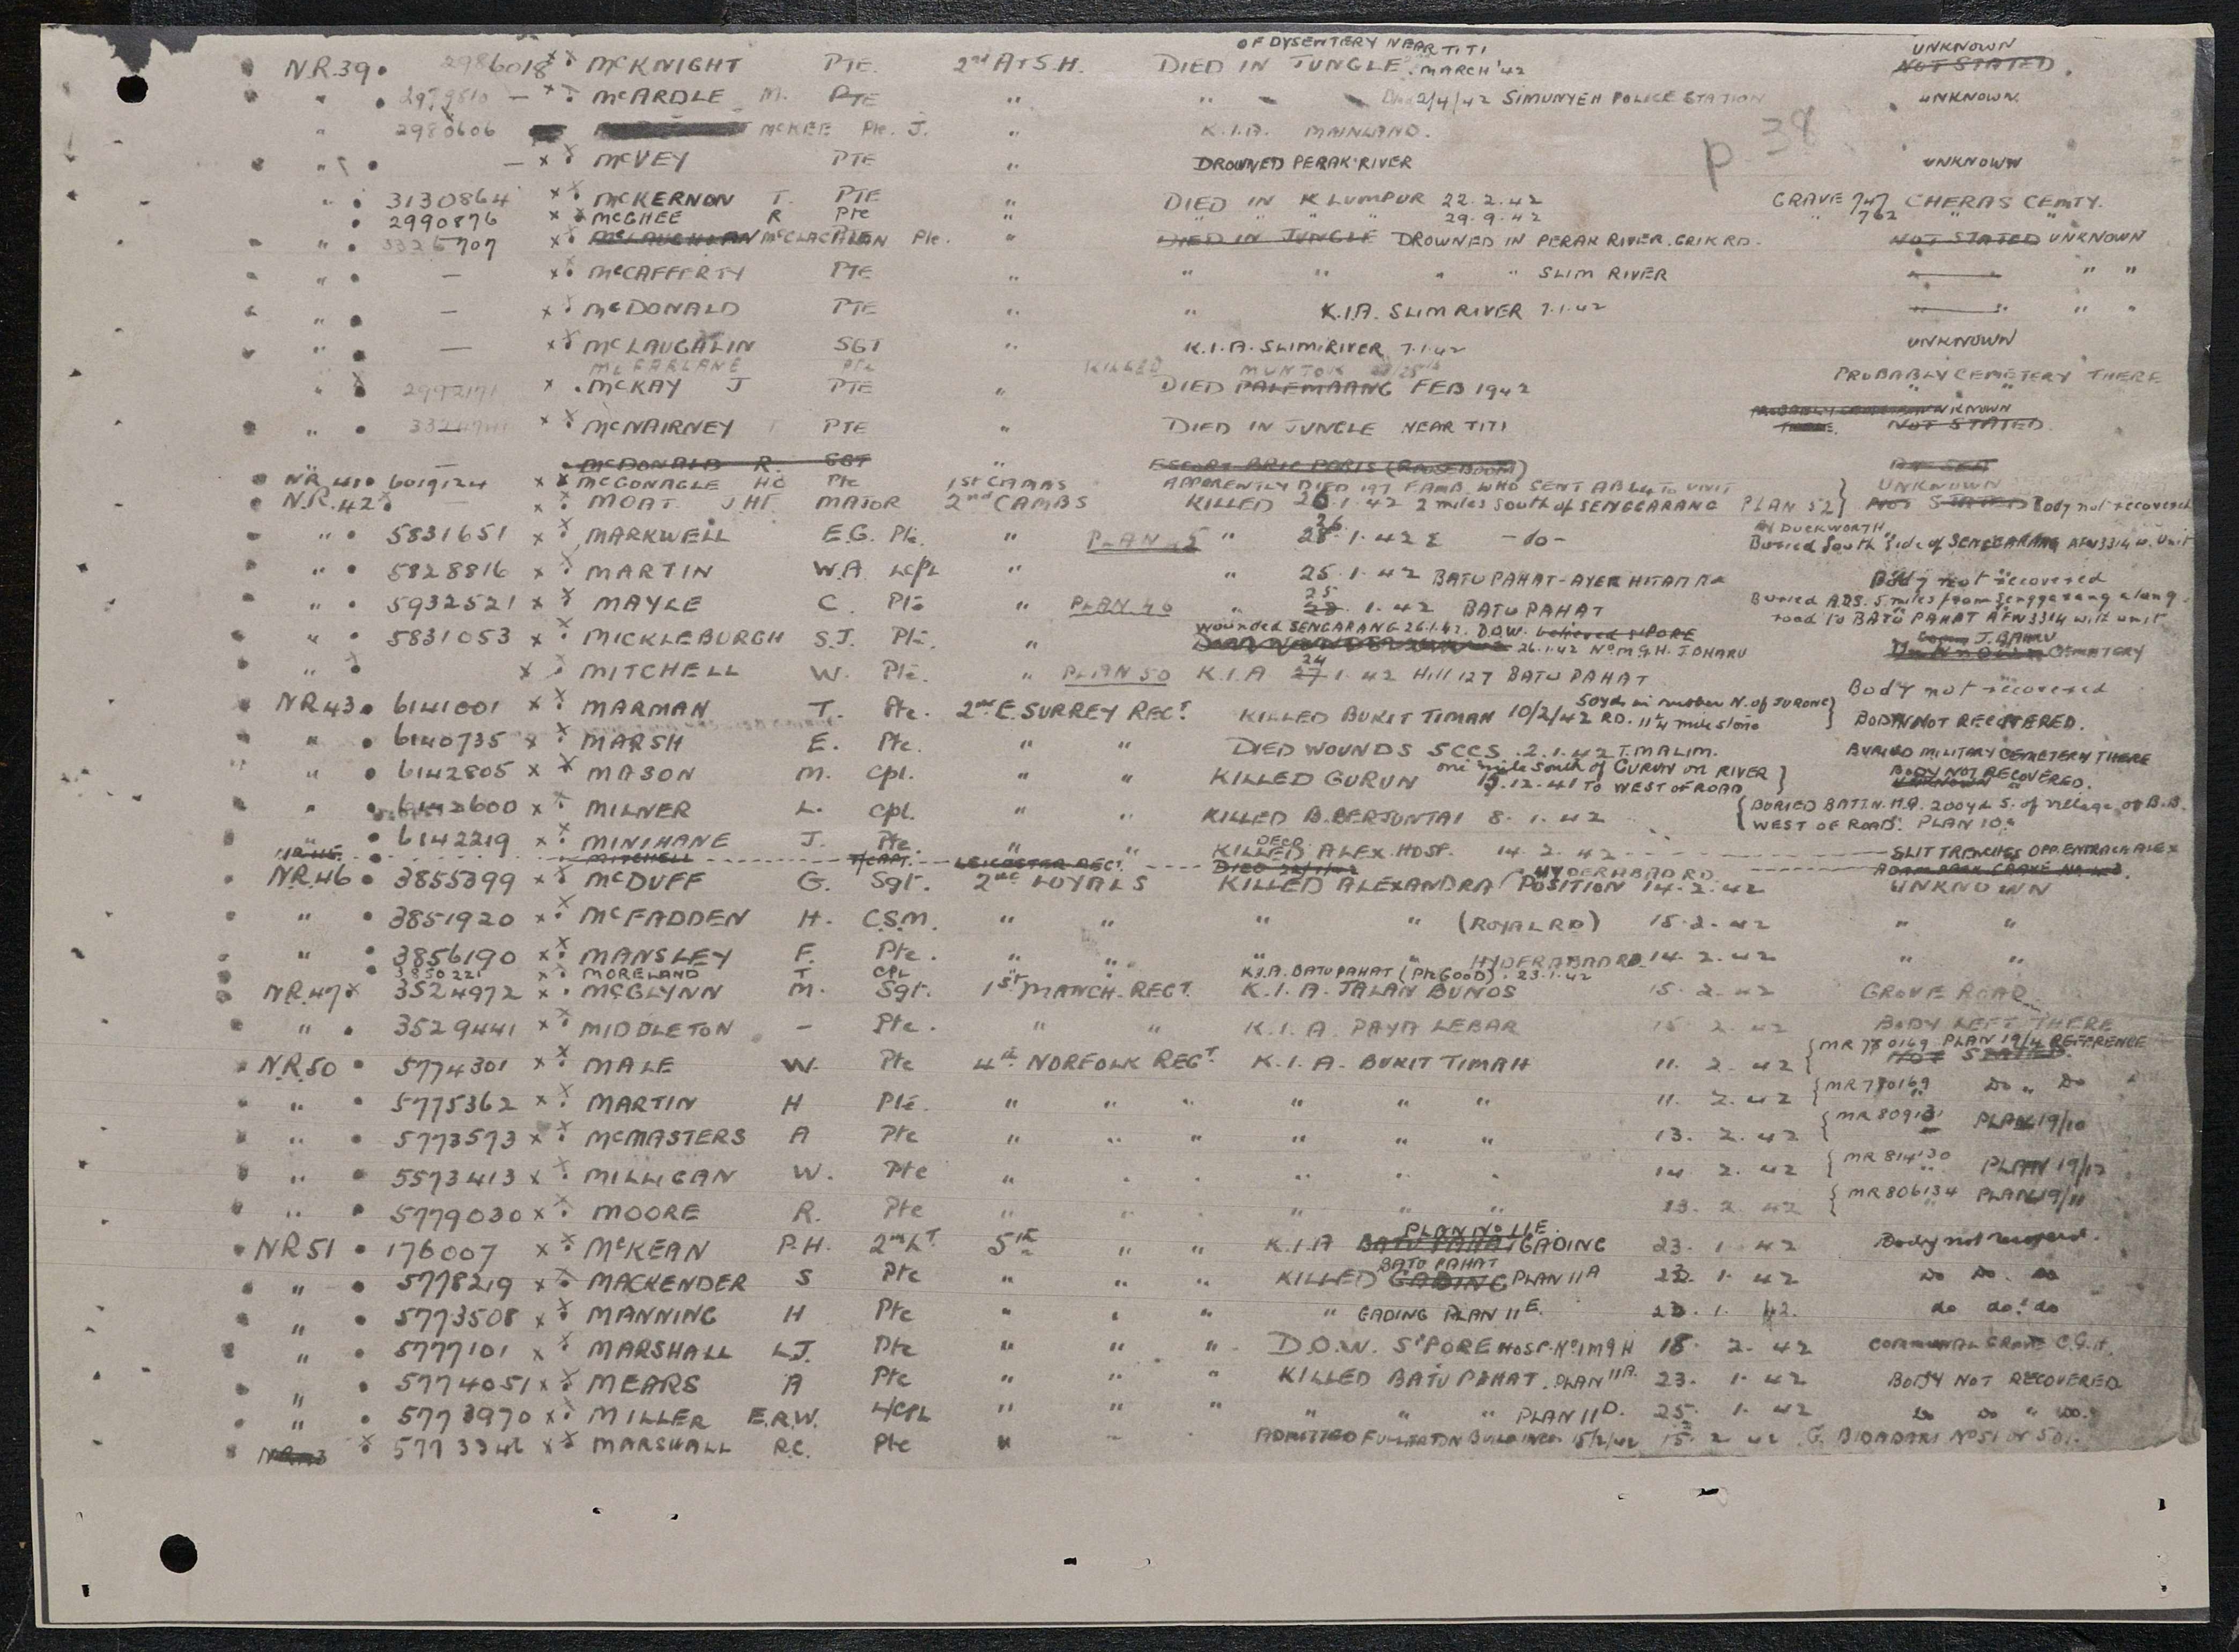 OF DYSENTERY NEAR TITI UNKNOWN
N.R.39 2986018 McKNIGHT PTE. 2nd A+S.H. DIED IN JUNGLE. MARCH '42 NOT STATED.
" 2979810 — McARDLE M. PTE " " 2/4/42 SIMUNYEH POLICE STATION UNKNOWN.
" 2980606 McKEE Pte. J. " K.I.A. MAINLAND. p 38
" — McVEY PTE " DROWNED PERAK RIVER UNKNOWN
" 3130864 McKERNON T. PTE " DIED IN K LUMPUR 22.2.42 GRAVE 747 CHERAS CEMTY.
2990876 McGHEE R Pte " " " " " 29.9.42 " 762 " "
" 3326707 McLAUGHLAN McCLACHLAN Pte. " DIED IN JUNGLE DROWNED IN PERAK RIVER. GRIK RD. NOT STATED UNKNOWN
" — McCAFFERTY PTE " " " " " SLIM RIVER " "
" — McDONALD PTE " " K.I.A. SLIM RIVER 7.1.42 " "
" — McLAUGHLIN SGT " K.I.A. SLIM RIVER 7.1.42 UNKNOWN
McFARLANE Pte KILLED MUNTOK
" 2992171 McKAY J PTE " DIED PALEMBANG FEB 1942 PROBABLY CEMETERY THERE
UNKNOWN
" McNAIRNEY T PTE " DIED IN JUNGLE NEAR TITI NOT STATED.
" — McDONALD R. SGT " (ROOSEBOOM) AT SEA
NR.41 6019124 McGONAGLE HO Pte 1st CAMBS APPARENTLY DIED 197 F.AMB. WHO SENT AB64 TO UNIT UNKNOWN
N.R.42 — MOAT JHF. MAJOR 2nd CAMBS KILLED 26.1.42 2 miles South of SENGGARANG PLAN 52 } NOT STATED Body not recovered
" 5831651 MARKWELL E.G. Pte. " PLAN 45 " 28 26.1.42 — do — By DUCKWORTH Buried South Side of SENGGARANG AFW3314 w. Unit
" 5828816 MARTIN W.A. L/CPL " " 25.1.42 BATU PAHAT-AYER HITAM Rd Body not recovered
" 5932521 MAYLE C. Pte " PLAN 40 " 25.1.42 BATU PAHAT Buried A.D.S. 5 miles from Senggarang along road to BATU PAHAT AFW3314 with unit
" 5831053 MICKLEBURGH S.J. Pte. " Wounded SENGARANG 26.1.42. D.O.W. believed S'PORE 26.1.42 No M.G.H. J. BHARU J. BAHRU CEMETERY
" MITCHELL W. Pte. " PLAN 50 K.I.A 27 24.1.42 Hill 127 BATU PAHAT Body not recovered
NR43 6141001 MARMAN T. Pte. 2nd E. SURREY REGT. KILLED BUKIT TIMAH 10/2/42 50yds in rubber N. of JURONG RD. 11¼ mile stone } BODY NOT RECOVERED.
" 6140735 MARSH E. Pte. " " DIED WOUNDS 5CCS. 2.1.42 T. MALIM. BURIED MILITARY CEMETERY THERE
" 6142805 MASON M. Cpl. " " KILLED GURUN 15.12.41 one mile South of GURUN on RIVER TO WEST OF ROAD } BODY NOT RECOVERED. UNKNOWN
" 6142600 MILNER L. Cpl. " " KILLED B. BERJUNTAI 8.1.42 { BURIED BATTN. H.Q. 200yd S. of village of B.B. WEST OF ROAD. PLAN 10A
" 6142219 MINIHANE J. Pte. " " KILLED DECD. ALEX. HOSP. 14.2.42 SLIT TRENCHES OPP. ENTRANCE ALEX
NR45 MITCHELL T/CAPT. LEICESTER REGT. DIED ADAM PARK GRAVE
NR.46 3855399 McDUFF G. Sgt. 2nd LOYALS KILLED ALEXANDRA POSITION HYDERABAD RD. 14.2.42 UNKNOWN
" 3851920 McFADDEN H. C.S.M. " " " " (ROYAL RD) 15.2.42 " "
" 3856190 MANSLEY F. Pte. " " " HYDERABAD RD. 14.2.42 " "
3850221 MORELAND T CPL " " K.I.A. BATU PAHAT (Pte GOOD). 23.1.42
NR.47 3524972 McGLYNN M. Sgt. 1st MANCH. REGT. K.I.A. JALAN BUNOS 15.2.42 GROVE ROAD
" 3529441 MIDDLETON — Pte. " " K.I.A. PAYA LEBAR 15.2.42 BODY LEFT THERE
N.R.50 5774301 MALE W. Pte 4th NORFOLK REGT. K.I.A. BUKIT TIMAH 11.2.42 { MR 780169 PLAN 19/4 REFERENCE NOT STATED.
" 5775362 MARTIN H Pte. " " " " " " 11.2.42 { MR 780169 Do " Do
" 5773573 McMASTERS A Pte " " " " " " 13.2.42 { MR 809131 PLAN 19/10
" 5573413 MILLIGAN W. Pte " " " " " " 14.2.42 { MR 814130 PLAN 19/12
" 5779030 MOORE R. Pte " " " " " " 13.2.42 { MR 806134 PLAN 19/11
NR51 176007 McKEAN P.H. 2nd LT. 5th " " K.I.A BATU PAHAT GADING PLAN No 11E. 23.1.42 Body not recoverd.
" 5778219 MACKENDER S Pte " " " KILLED GADING BATU PAHAT PLAN 11A 23.1.42 Do Do. Do
" 5773508 MANNING H Pte " " " " GADING PLAN 11E. 23.1.42. do do. do
" 5777101 MARSHALL L.J. Pte " " " D.O.W. S'PORE HOSP. No 1 MGH 18.2.42 COMMUNAL GRAVE C.G.H.
" 5774051 MEARS A Pte " " " KILLED BATU PAHAT. PLAN 11A. 23.1.42 BODY NOT RECOVERED
" 5773970 MILLER E.R.W. L/CPL " " " " " " PLAN 11D. 25.1.42 Do Do " Do.
5773346 MARSHALL R.C. Pte " " " ADMITTED FULLERTON BUILDINGS 15/2/42 15.2.42 G. BIDADARI No 51 or 501.